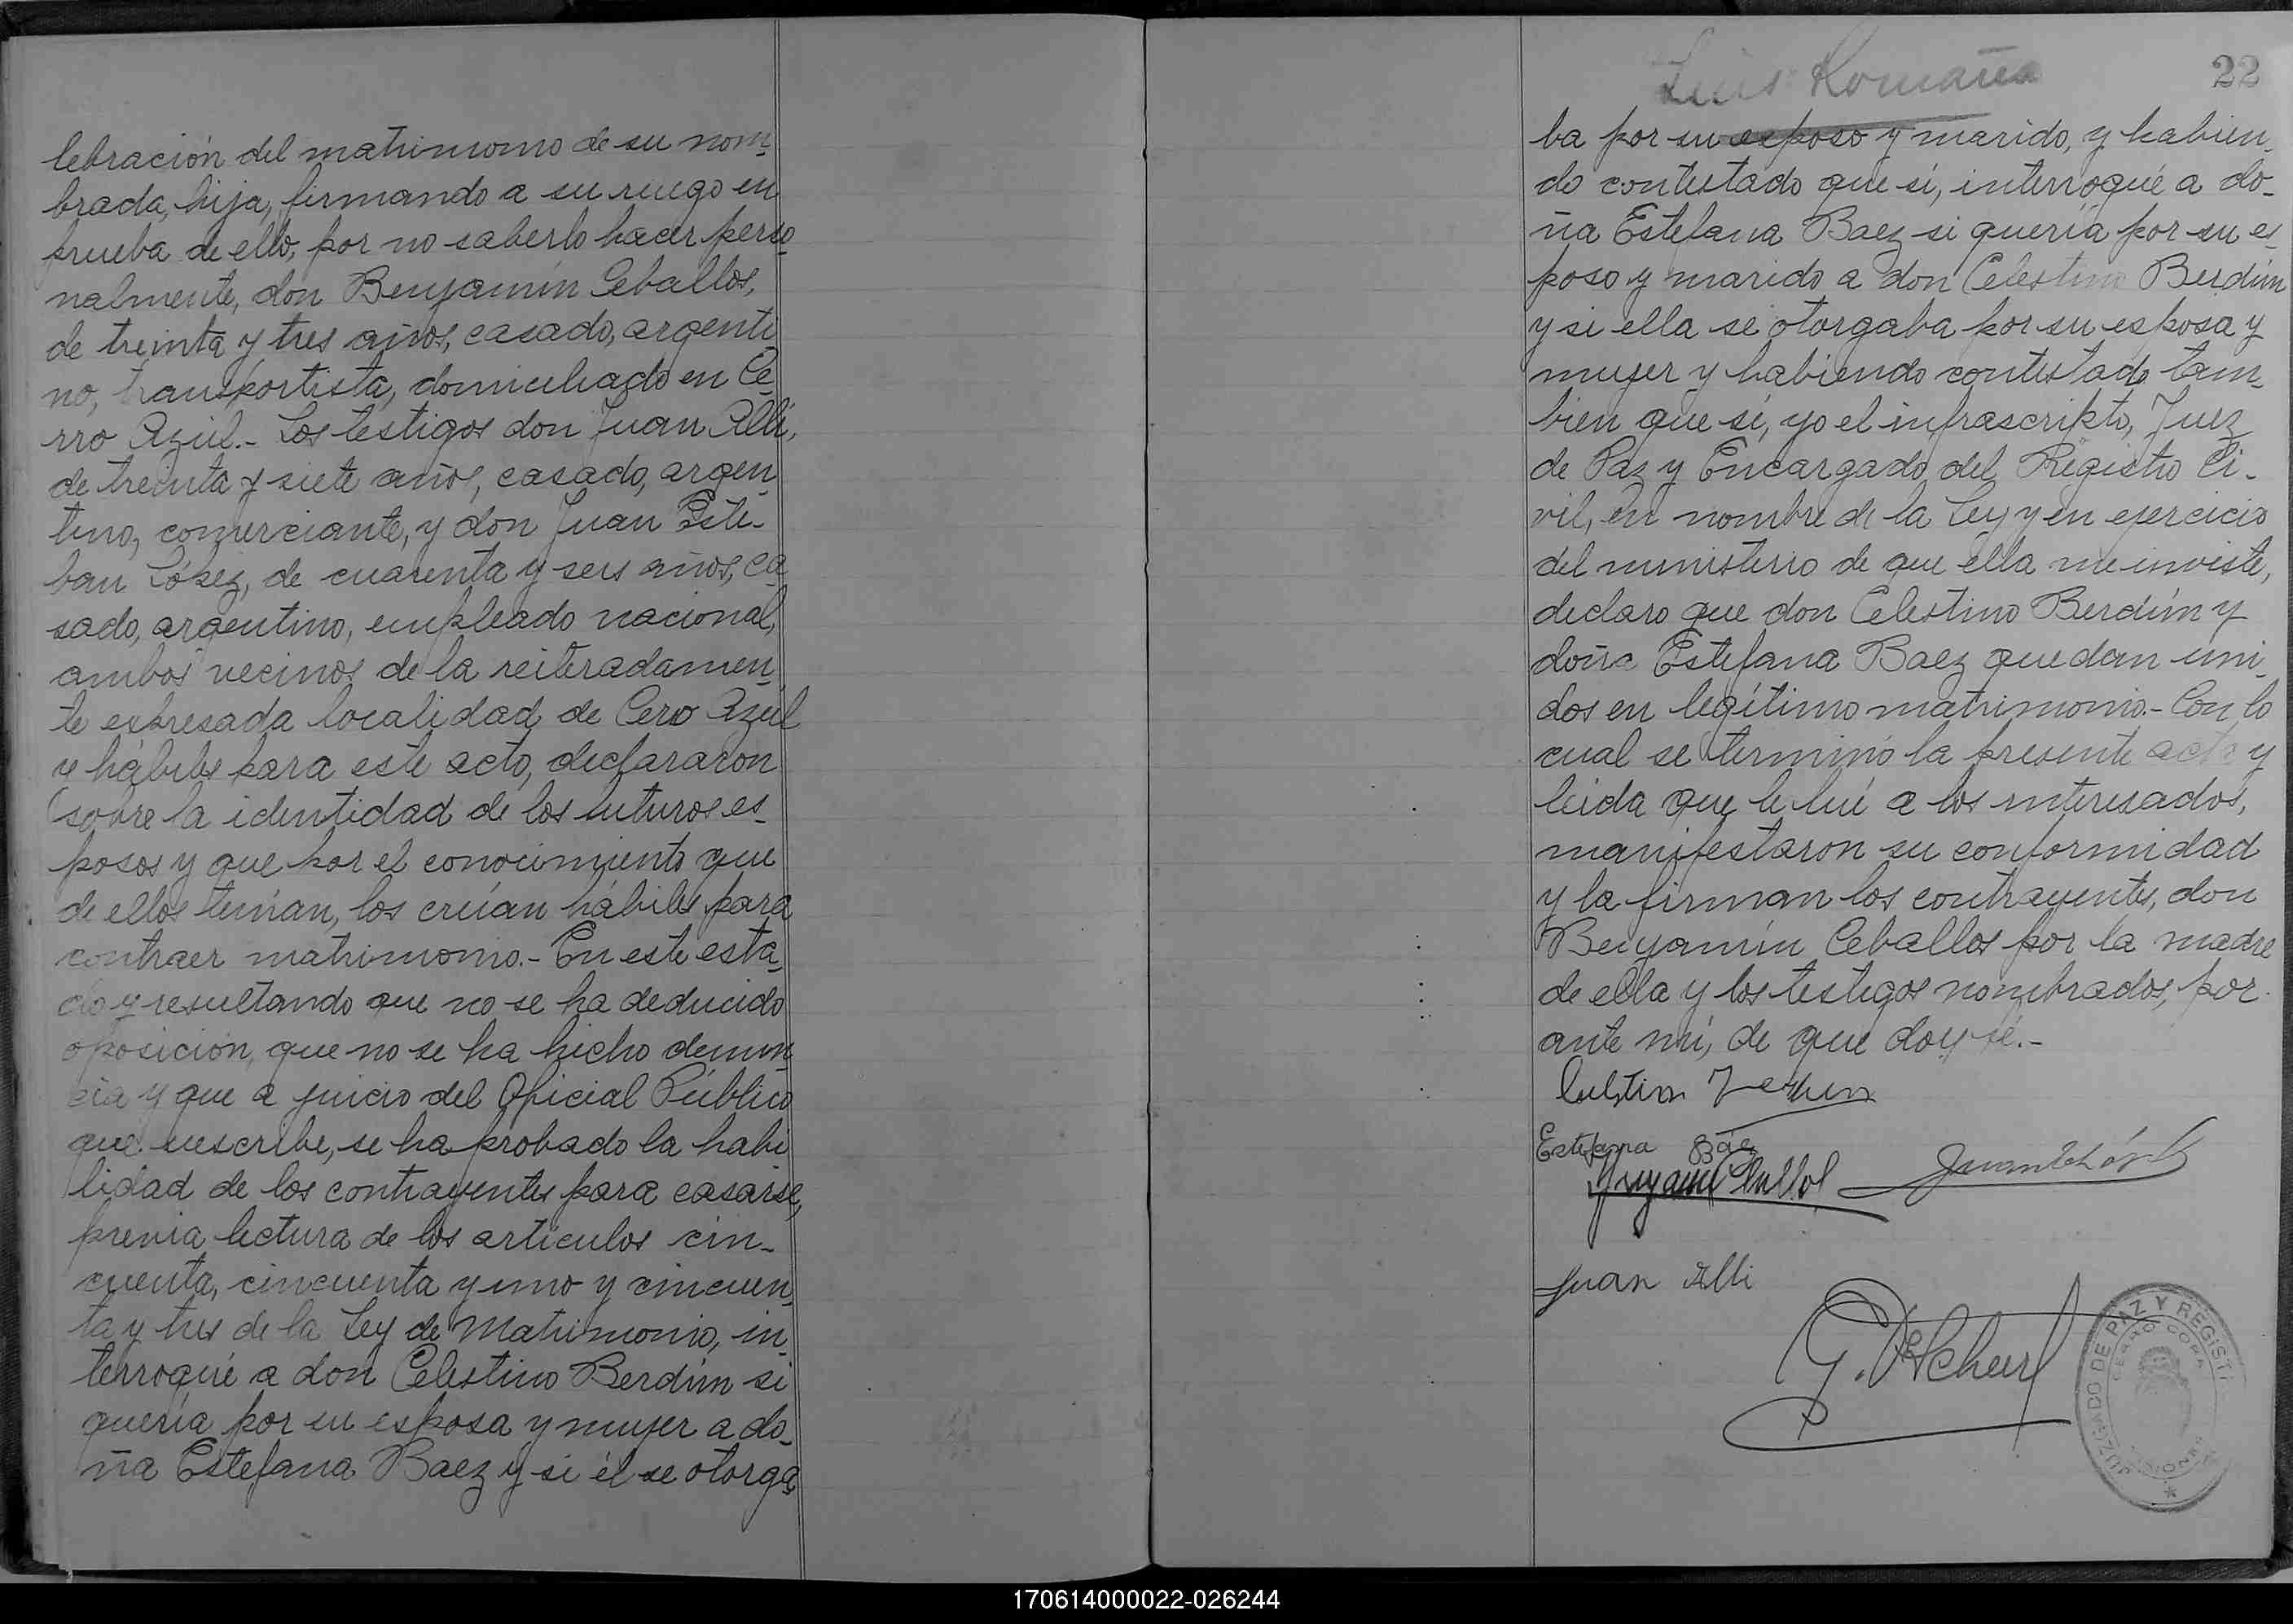 lebración del matrimonio de su nom-
brada, hija, firmando a su ruego en
prueba de ello, por no saberlo hacer perso-
nalmente, don Benjamín Ceballos,
de treinta y tres años, casado, argenti-
no, transportista, domiciliado en Ce-
rro Azul.- Los testigos don Juan Alli,
de treinta y siete años, casado, argen-
tino, comerciante, y don Juan Este-
ban López, de cuarenta y seis años, ca-
sado, argentino, empleado nacional,
ambos vecinos de la reiteradamen-
te expresada localidad de Cerro Azul
y hábiles para este acto, declararon
sobre la identidad de los futuros es-
posos y que por el conocimiento que
de ellos tenían, los creían hábiles para
contraer matrimonio.- En este esta-
do y resultando que no se ha deducido
oposición, que no se ha hecho denun-
cia y que a juicio del Oficial Público
que suscribe, se ha probado la habi-
lidad de los contrayentes para casarse,
previa lectura de los artículos cin-
cuenta, cincuenta y uno y cincuen-
ta y tres de la Ley de Matrimonio, in-
terrogué a don Celestino Berdún si
quería por su esposa y mujer a do-
ña Estefana Baez y si él se otorga-
Luis Romaña
22
ba por su esposo y marido, y habien-
do contestado que sí, interrogué a do-
ña Estefana Baez si quería por su es-
poso y marido a don Celestino Berdún
y si ella se otorgaba por su esposa y
mujer y habiendo contestado tam-
bien que sí, yo el infrascripto, Juez
de Paz y Encargado del Registro Ci-
vil, en nombre de la Ley y en ejercicio
del ministerio de que ella me inviste,
declaro que don Celestino Berdún y
doña Estefana Baez quedan uni-
dos en legítimo matrimonio.- Con lo
cual se terminó la presente acta y
leida que le fué a los interesados,
manifestaron su conformidad
y la firman los contrayentes, don
Benjamín Ceballos por la madre
de ella y los testigos nombrados, por
ante mí, de que doy fé.-
Estefana Báez
Juan Alli
JUZGADO DE PAZ Y REGIST
CERRO CORA
MISIONES
170614000022-026244